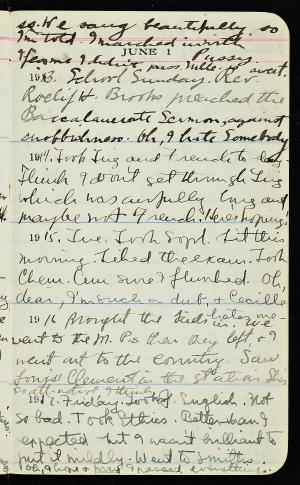 so. We sang beautifully, so
I'm told. I marched in with
JUNE 1
Pussy.
1913. School Sunday. Rev.
Roelif H. Brooks preached the
Baccalaureate Sermon, against
snobbishness. Oh, I hate Somebody
1914. Took Trig and French to-day.
Think I don't get through Trig
which was awfully long and
maybe not French. Here's hoping!
1915. Tue. Took Soph. Lit this
morning. Liked the exam. Took
Chem. Am sure I flunked. Oh,
dear, I'm such a dub, & Cecille
hates me
1916 Brought the birds in. We
went to the M. P.s than they left, & I
went out to the country. Saw
Clement in the station. She's
so attractive I think
1917. Friday. Took of English. Not
so bad. Took Ethics. Better than I
expected but I wasn't brilliant to
put it mildly. Went to Smith's.
Oh, I hope & pray I passed everything.